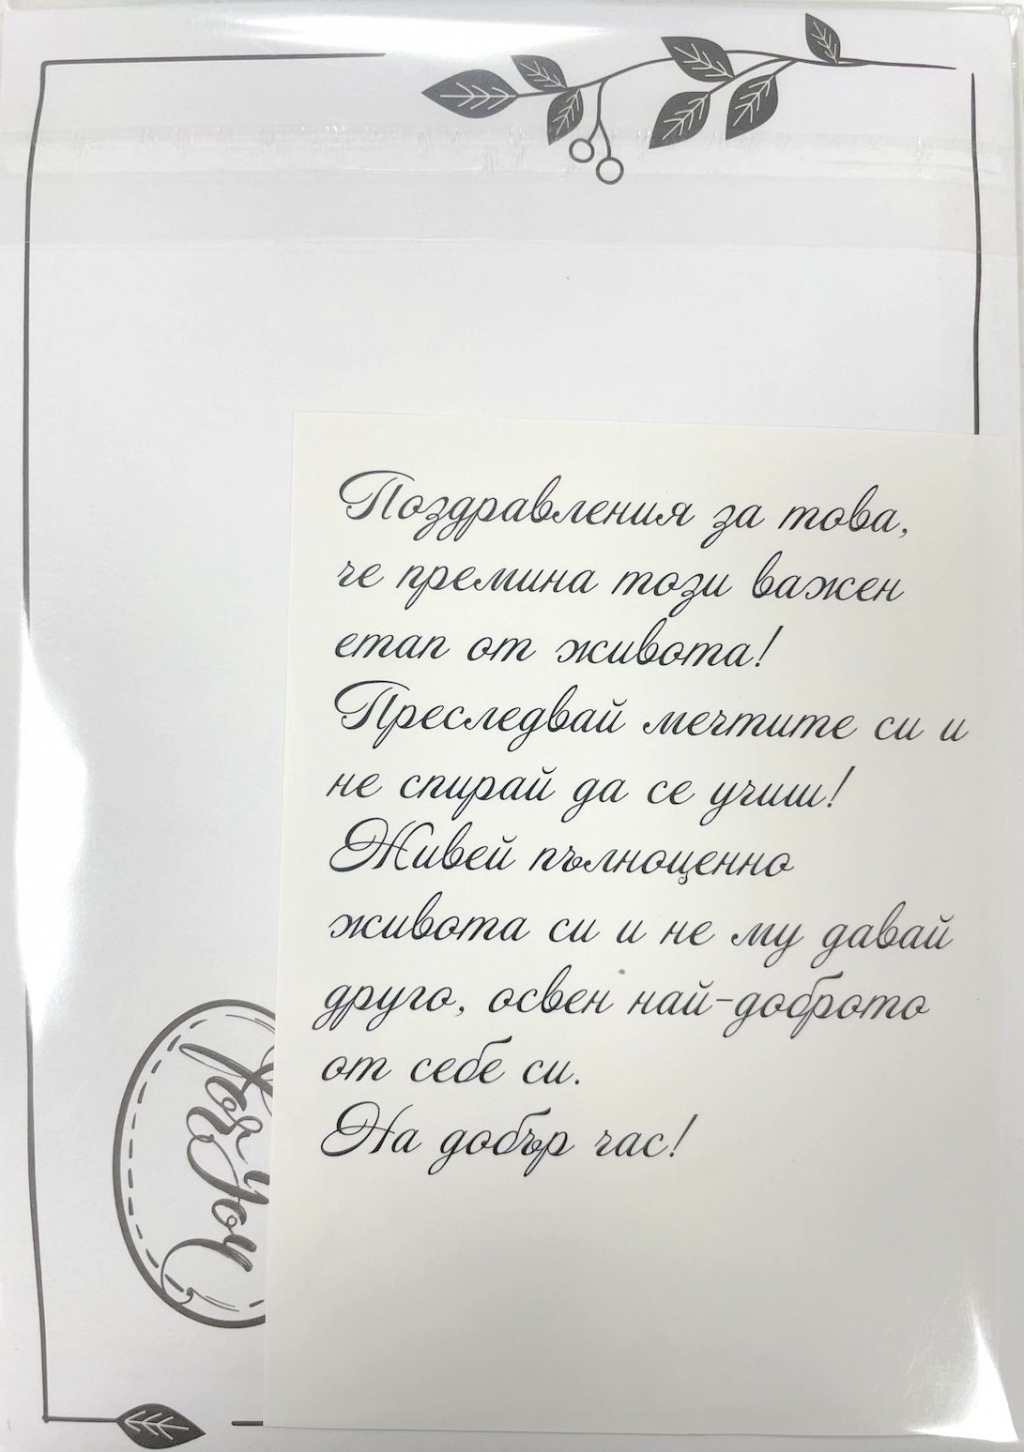 Поздравления за това,
че премина този важен
етап от живота!
Преследвай мечтите си и
не спирай да се учиш!
Живей пълноценно
живота си и не му давай
друго, освен най-доброто
от себе си.
На добър час!
for you